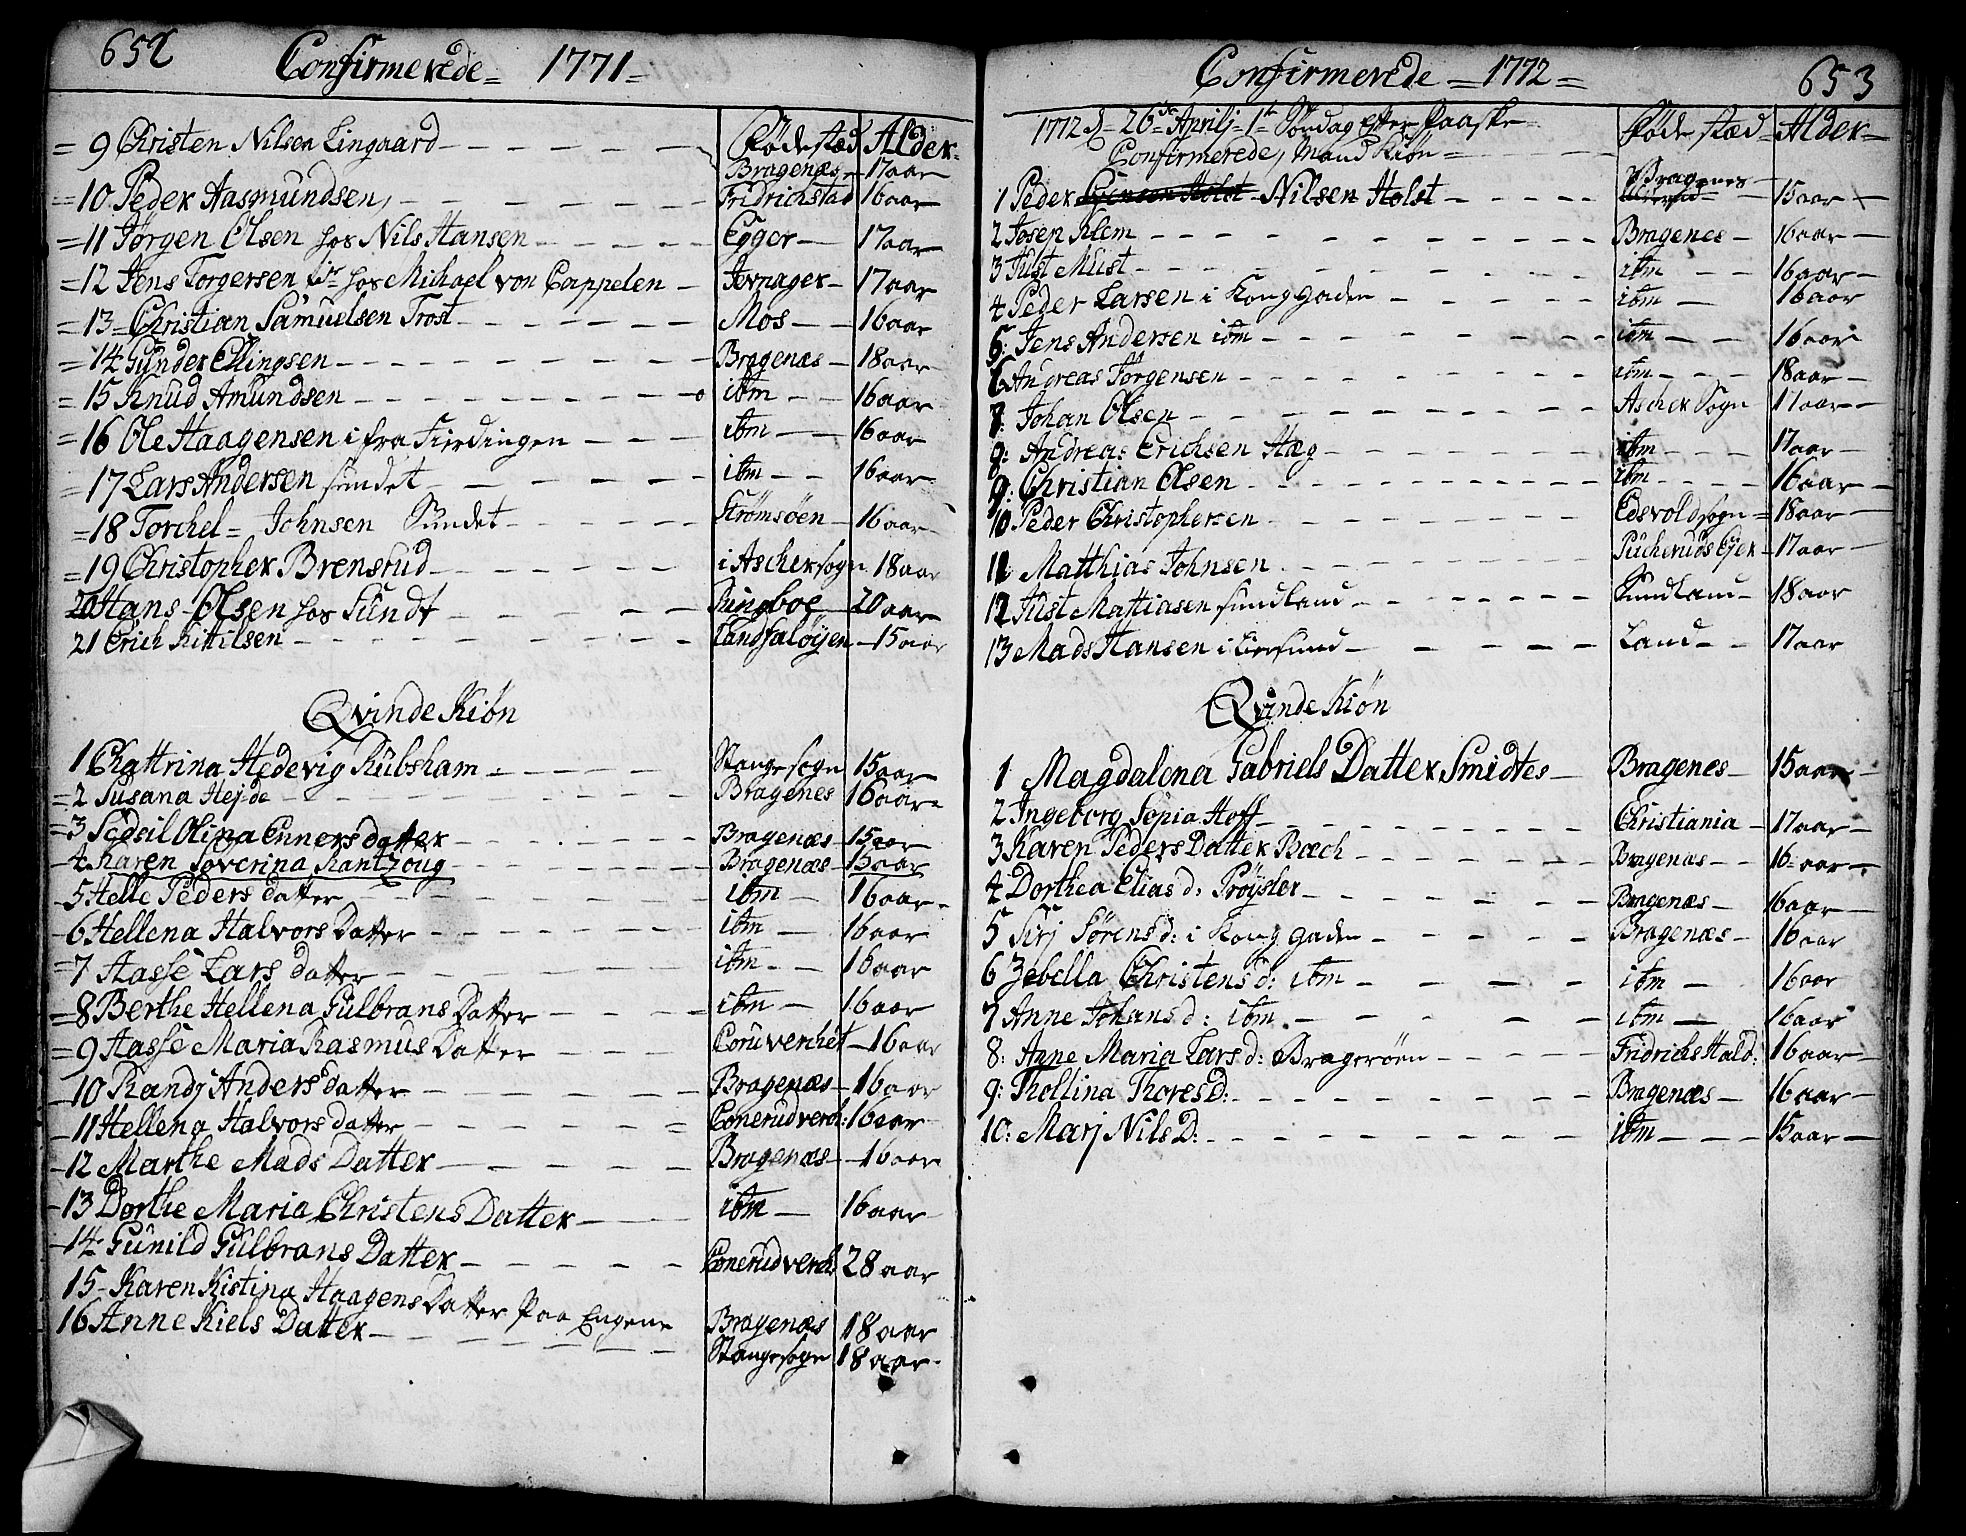 652 Confirmerede = 1771 =
Fødestæd Alder
= 9 Christen Nilsen Lingaard Bragenæs 17 aar
= 10 Peder Aasmundsen, Fridrichstad 16 aar
= 11 Jørgen Olsen hos Nils Hansen Egger 17 aar
= 12 Jens Torgersen hos Michael von Cappelen Jevnager 17 aar
= 13 Christian Samuelsen Trost Mos 16 aar
= 14 Gunder Ellingsen Bragenæs 18 aar
= 15 Knud Amundsen ibm 16 aar
= 16 Ole Haagensen ifra Fierdingen ibm 16 aar
= 17 Lars Andersen sundet ibm 16 aar
= 18 Torchel = Johnsen Sundet Strømsöen 16 aar
= 19 Christopher Brensrud i Ascher sogn 18 aar
20 Hans Olsen hos Fundt 20 aar
21 Erich Kittilsen Landfaløyen 15 aar
Qvinde Kiön
1 Chattrina Hedevig Rübsham Stange sogn 15 aar
= 2 Susana Hejde Bragenes 16 aar
= 3 Sedsil Olina Enners datter Bragenæs 15 aar
4 Karen Soverina Rantzoug Bragenæs 15 aar
5 Helle Peders datter ibm 16 aar
6 Hellena Halvors Datter ibm 16 aar
= 7 Aasse Lars datter ibm 16 aar
= 8 Berthe Hellena Gulbrans Datter ibm 16 aar
= 9 Aasse Maria Rasmus Datter 16 aar
10 Randj Anders datter Bragenæs 16 aar
11 Hellena Halvors datter Conerudverch: 16 aar
12 Marthe Mads Datter Bragenæs 16 aar
13 Dorthe Maria Christens Datter ibm 16 aar
14 Gunild Gulbrans Datter Conerudverch 28 aar
15 Karen Kistina Haagens Datter paa Engene Bragenæs 18 aar
16 Anne Kiels Datter Stange sogn 18 aar
Confirmerede = 1772 = 653
1772 d 26de Aprilj 1te Søndag Efter Paaske Fødestæd Alder
Confirmerede, Mand Kiön
1 Peder Nilsen Holst Bragenes 15 aar
2 Josep Klem Bragenes 16 aar
3 Just Must ibm 16 aar
4 Peder Larsen i Konggaden ibm 16 aar
5: Jens Andersen ibm ibm 16 aar
6 Andreas Jørgensen ibm 18 aar
8: Johan Olsen Ascher Sogn 17 aar
8: Andreas Erichsen Hæg ibm 17 aar
9: Christian Olsen ibm 16 aar
10 Peder Christophersen Edsvold sogn 18 aar
11 Matthias Johnsen Puckeruds Ejer 17 aar
12 Just Mattiasen sundland Sundland 18 aar
13 Mads Hansen i Liersund Land 17 aar
Qvinde Kiön
1 Magdalena Gabriels Datter Smidtes Bragenes 15 aar
2 Ingeborg Sopia Hoff Christiania 17 aar
3 Karen Peders Datter Bæch Bragenæs 16 aar
4 Dorthea Elias d: Prøysler Bragenæs 16 aar
5 Sirj Sørens d: i Kong gaden Bragenæs 16 aar
6 Zebella Christens d: ibm ibm 16 aar
7 Anne Johans d: ibm ibm 16 aar
8: Anne Maria Lars d: Bragerøen Fridrichs Hald: 16 aar
9: Thollina Thores D: Bragenæs 16 aar
10: Marj Nils D: ibm 15 aar